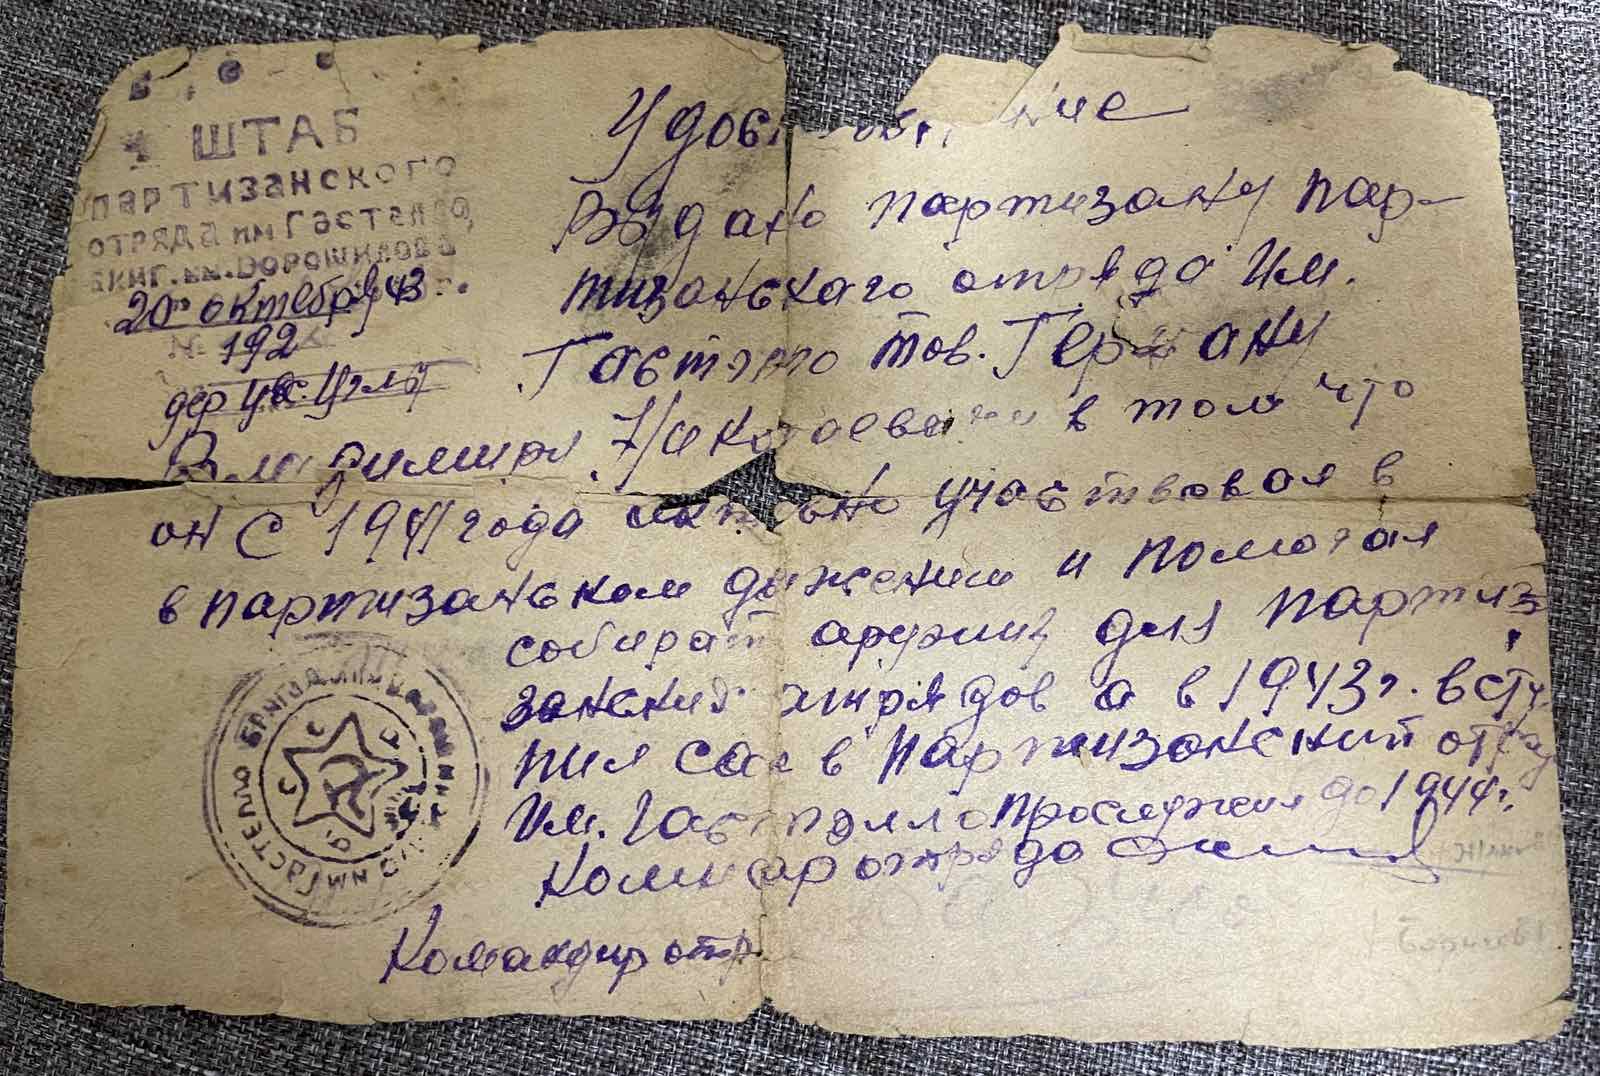 Б.
ШТАБ
ПАРТИЗАНСКОГО
ОТРЯДА ИМ ГАСТЕЛЛО,
БРИГ. ИМ. ВОРОШИЛОВА
20го октября 43 г.
№ 192
дер
Удос ние
Выдано партизану пар-
тизанскаго отряда Им.
Гастэло тов. Герману
Владимиру Николоевичу в том что
он с 1941 года активно участвовал в
в партизанском движении и помогал
собират аружия для партиз
занских отрядов а в 1943 г. всту
пил сам в партизанский отряд
Им. Гастэлло прослужил до 1944 г.
Комисар отряда
Командир отр
БРИГАДЫ ИМ ГАСТЕЛЛО
С С С Р